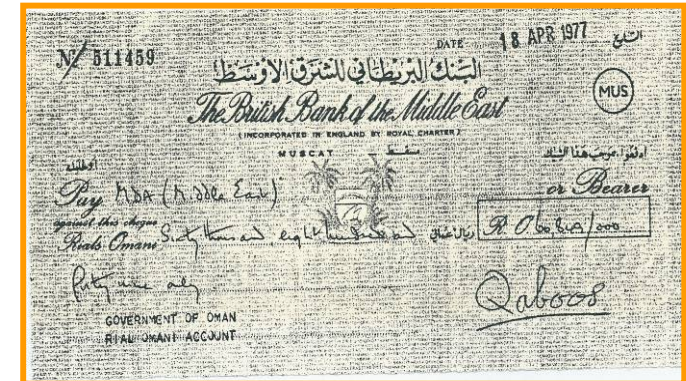 DATE 18 APR 1977 التاريخ
Nº 511459
البنك البريطاني للشرق الأوسط
MUS
The British Bank of the Middle East
(INCORPORATED IN ENGLAND BY ROYAL CHARTER)
MUSCAT مسقط
ادفعوا بموجب هذا الشيك
Pay MDA (Middle East) or Bearer
against this cheque
Rials Omani Sixty thousand, eight hundred and ريال عماني R.O.
only
Qaboos
GOVERNMENT OF OMAN
RIAL OMANI ACCOUNT